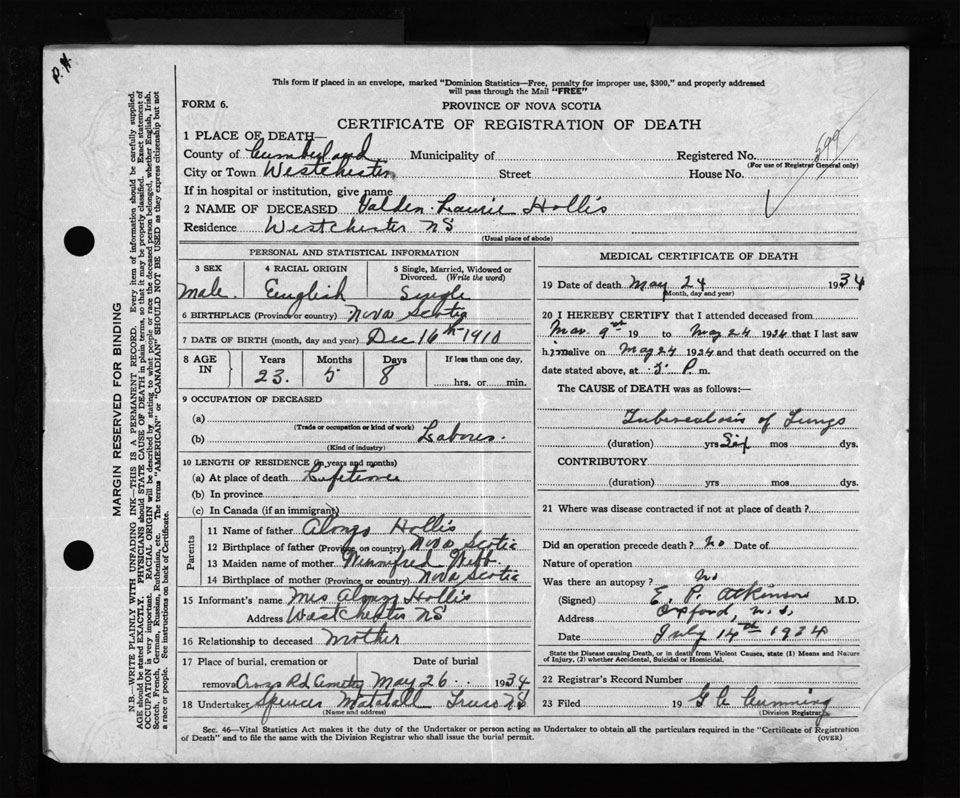 P.H.
This form if placed in an envelope, marked "Dominion Statistics—Free, penalty for improper use, $300," and properly addressed
will pass through the Mail "FREE"
FORM 6.
PROVINCE OF NOVA SCOTIA
CERTIFICATE OF REGISTRATION OF DEATH
1 PLACE OF DEATH—
County of Cumberland Municipality of Registered No. 599
(For use of Registrar General only)
City or Town Westchester Street House No.
If in hospital or institution, give name
2 NAME OF DECEASED Valden Laurie Hollis
Residence Westchester NS
(Usual place of abode)
PERSONAL AND STATISTICAL INFORMATION
3 SEX 4 RACIAL ORIGIN 5 Single, Married, Widowed or
Divorced. (Write the word)
Male. English Single
6 BIRTHPLACE (Province or country) Nova Scotia
7 DATE OF BIRTH (month, day and year) Dec 16th 1910
8 AGE IN Years Months Days If less than one day,
23. 5 8 hrs. or min.
9 OCCUPATION OF DECEASED
(a)
(Trade or occupation or kind of work)
(b) Labourer.
(Kind of industry)
10 LENGTH OF RESIDENCE (in years and months)
(a) At place of death Lifetime
(b) In province
(c) In Canada (if an immigrant)
Parents
11 Name of father Alonzo Hollis
12 Birthplace of father (Province or country) Nova Scotia
13 Maiden name of mother Winnifred Webb
14 Birthplace of mother (Province or country) Nova Scotia
15 Informant's name Mrs Alonzo Hollis
Address Westchester NS
16 Relationship to deceased Mother
17 Place of burial, cremation or Date of burial
removal Rd Cemetry May 26 1934
18 Undertaker Spencer Mattatall Truro NS
(Name and address)
MEDICAL CERTIFICATE OF DEATH
19 Date of death May 24 1934
(Month, day and year)
20 I HEREBY CERTIFY that I attended deceased from
Mar. 9th 19 to May 24 1934 that I last saw
him alive on May 24 1934 and that death occurred on
date stated above, at P. m.
The CAUSE of DEATH was as follows:—
Tuberculosis of Lungs
(duration) yrs. Six mos. dys.
CONTRIBUTORY
(duration) yrs. mos. dys.
21 Where was disease contracted if not at place of death?
Did an operation precede death? No Date of
Nature of operation
Was there an autopsy? No
(Signed) E. P. Atkinson M.D.
Address Oxford, N.S.
Date July 14th 1934
State the Disease causing Death, or in death from Violent Causes, state (1) Means and Nature
of Injury, (2) whether Accidental, Suicidal or Homicidal.
22 Registrar's Record Number
23 Filed 19 G Cumming
(Division Registrar)
Sec. 46—Vital Statistics Act makes it the duty of the Undertaker or person acting as Undertaker to obtain all the particulars required in the "Certificate of Registration
of Death" and to file the same with the Division Registrar who shall issue the burial permit.
(OVER)
MARGIN RESERVED FOR BINDING
N.B.—WRITE PLAINLY WITH UNFADING INK—THIS IS A PERMANENT RECORD. Every item of information should be carefully supplied.
AGE should be stated EXACTLY. PHYSICIANS should STATE CAUSE OF DEATH in plain terms, so that it may be properly classified. Exact statement of
OCCUPATION is very important. RACIAL ORIGIN will be described by stating to what people or race the deceased person belonged, whether English, Irish,
Scotch, French, German, Russian, Ruthenian, etc. The terms "AMERICAN" or "CANADIAN" SHOULD NOT BE USED as they express citizenship but not
a race or people. See instructions on back of Certificate.